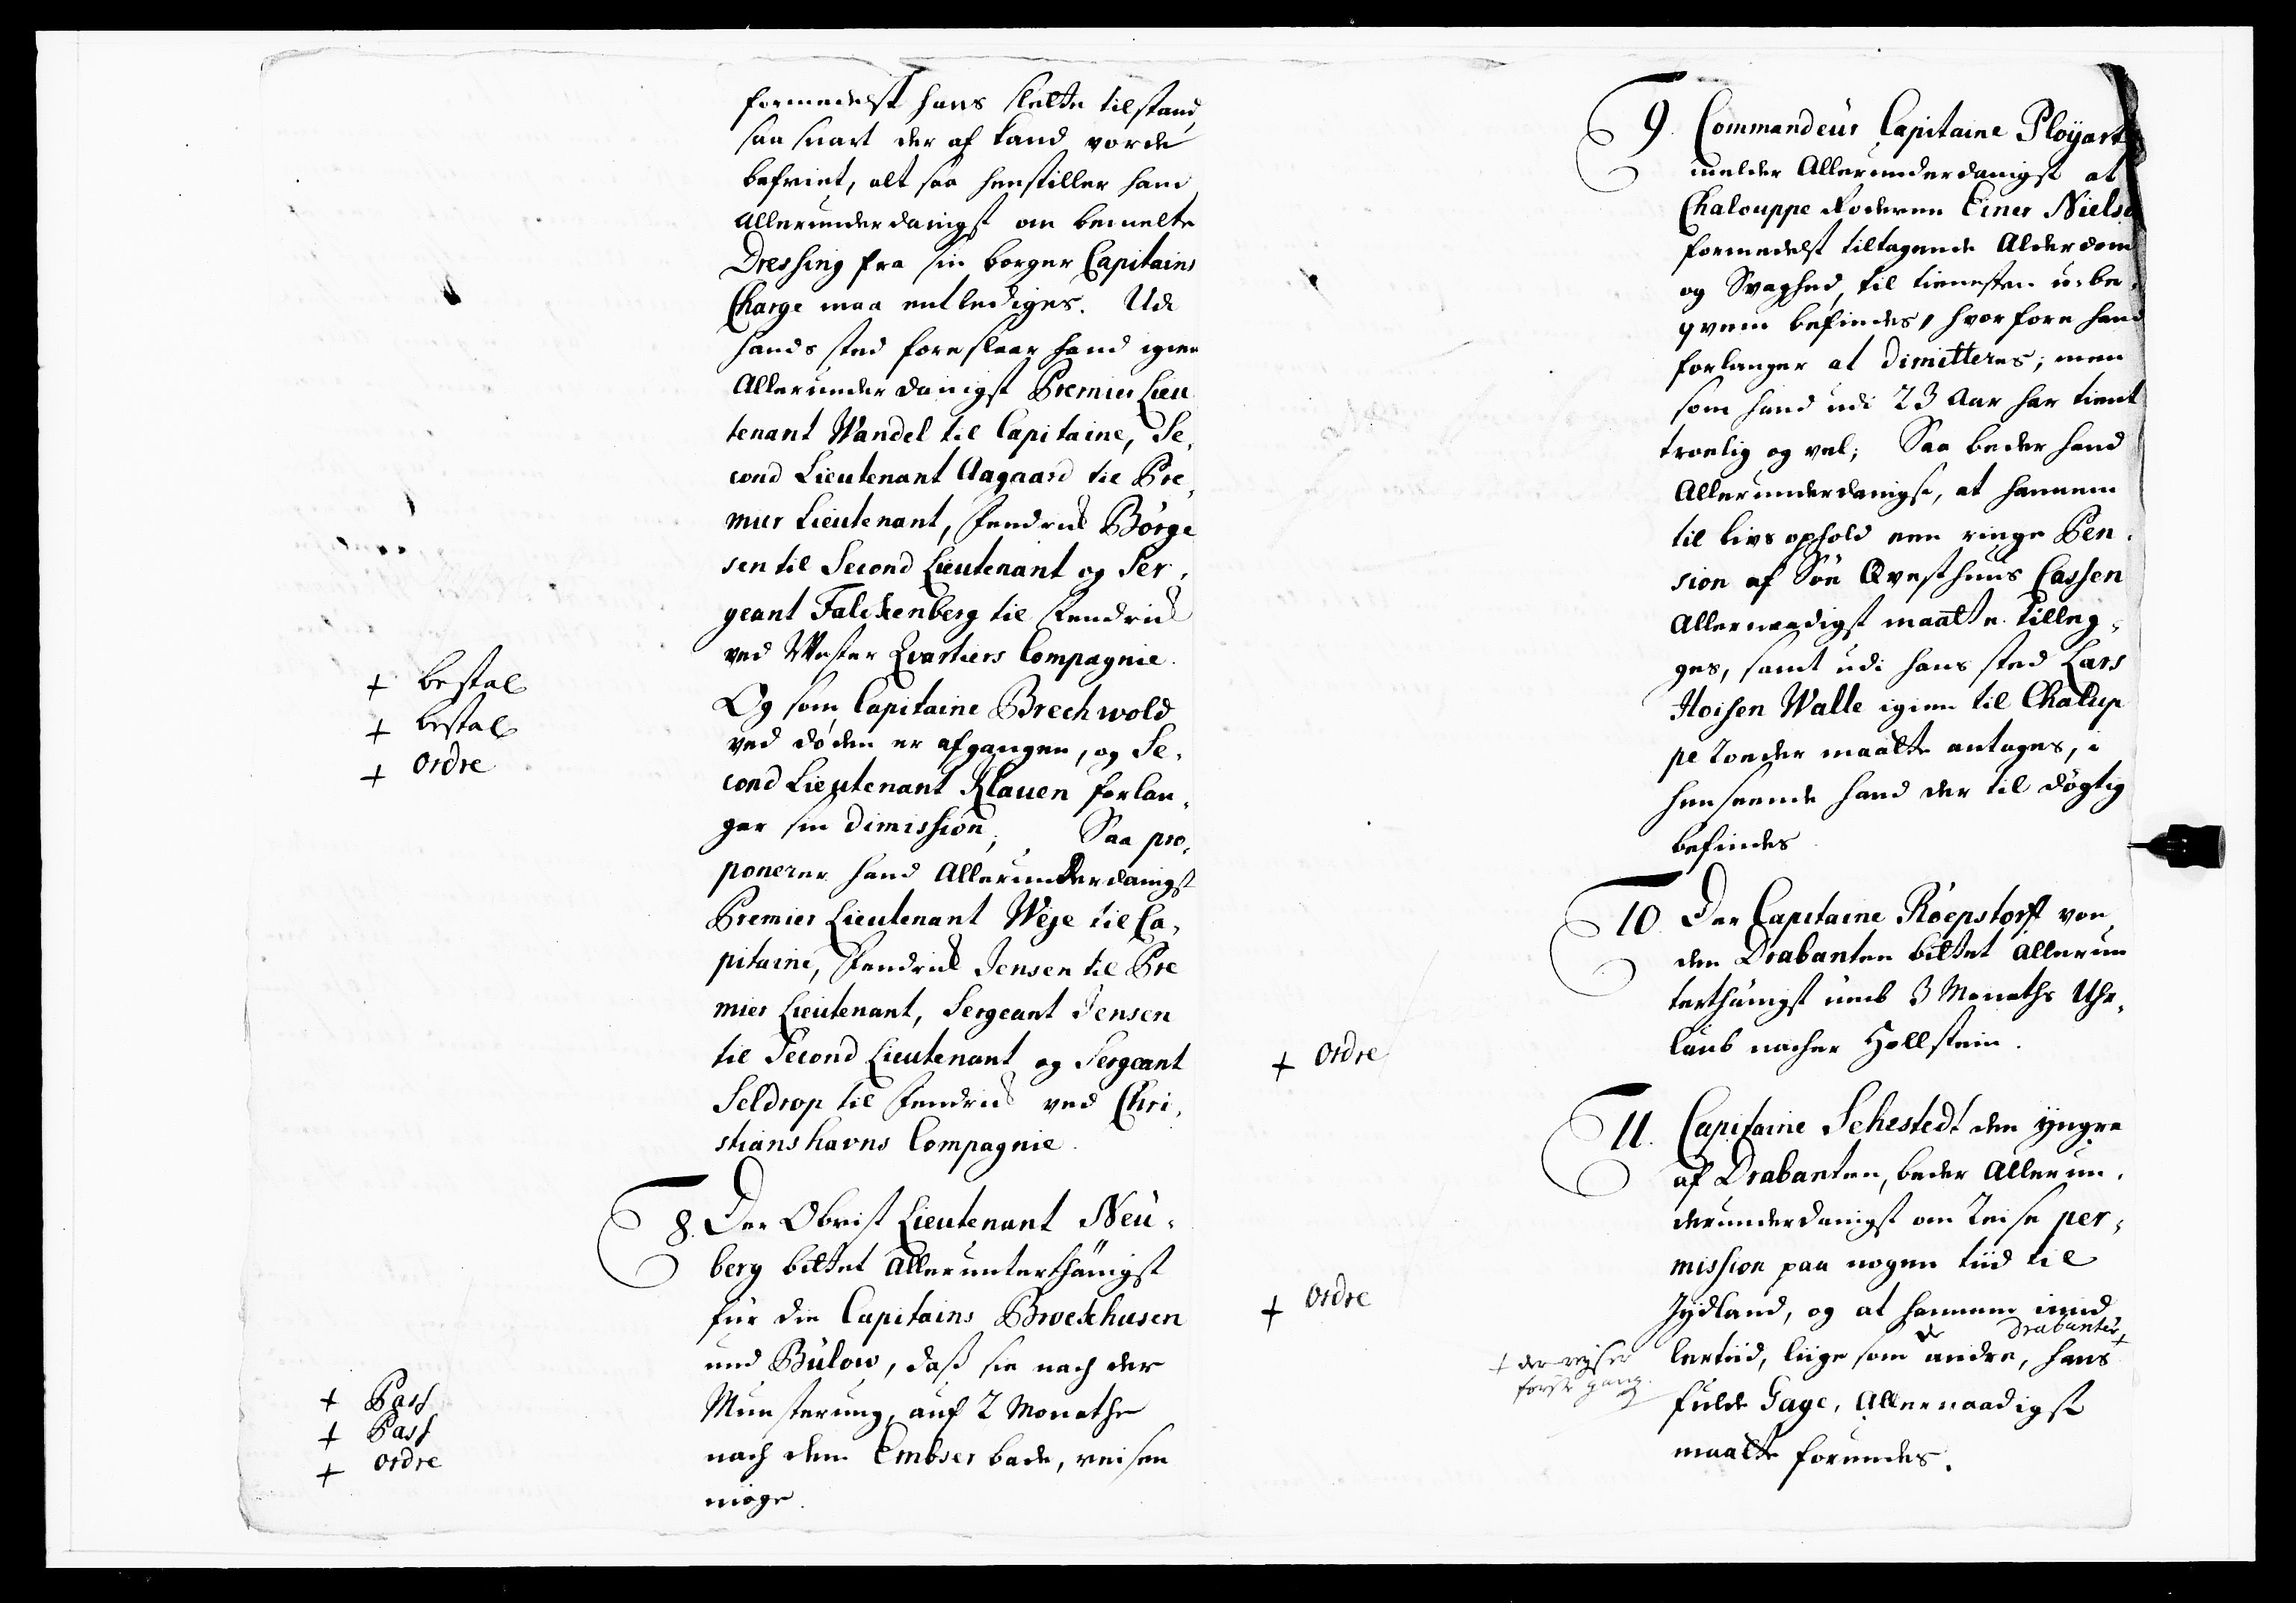 formedelst hans slette tilstand,
saa snart der af kand vorde
befriet, alt saa henstiller hand
Allerunderdanigst om bemelte
Dressing fra sin borger Capitains
Charge maa entlediges. Udi
hands sted foreslaar hand igien
Allerunderdanigst Premier Lieu
tenant Wandel til Capitaine, Se,
cond Lieutenant Aagaard til Pre,
mier Lieutenant, Fendrich Börge
sen til Second Lieutenant og Ser,
geant Falckenberg til Fendrich
ved Wester Qvartiers Compagnie.
+ bestal
+ bestal
+ ordre
Og som Capitaine Brechwold
ved döden er afgangen, og Se,
cond Lieutenant Klauen forlan,
ger sin dimission, Saa pro,
ponerer hand Allerunderdanigst
Premier Lieutenant Weje til Ca,
pitaine, Fendrich Jensen til Pre
mier Lieutenant, Sergeant Jensen
til Second Lieutenant og Sergeant
Seldrop til Fendrich ved Chri,
stianshavns Compagnie.
8. Der Obrist Lieutenant Neu,
berg bittet Allerunterthänigst
für die Capitains Brockhusen
und Bülow, daß sie nach der
Munsterung, auf 2 Monathe
nach dem Embser bade, reisen
möge.
+ Pass
+ Pass
+ ordre
9. Commandeur Capitaine Ployart
melder Allerunderdanigst at
Chalouppe Roderen Einer Niels
formedelst tiltagende Alderdom
og Svaghed, til tienesten u-be,
qvem befindes, hvorfore hand
forlanger at dimitteres; men
som hand udi 23 Aar har tient
troelig og vel; Saa beder hand
Allerunderdanigst, at hannem
til livs ophold een ringe Pen,
sion af Söe Qvesthuus Cassen
Allernaadigst maatte tilleg,
ges, samt udi hans sted Lars
Hoisen Walle igien til Chalup
pe Roeder maatte antages, i
henseende hand der til dögtig
befindes.
10. Der Capitaine Röepstorff von
den Drabanten bittet Allerun
terthänigst umb 3 Monaths Uhr,
laub nacher Hollstein.
+ ordre
11. Capitaine Sehestedt den yngre
af Drabanten, beder Allerun,
derunderdanigst om Reise per,
mission paa nogen tiid til
Jydland, og at hannem imid
lertiid, liige som de andre, Drabanter + hans
+ der rejser
förste gang.
fulde Gage, Allernaadigst
maatte forundes.
+ ordre